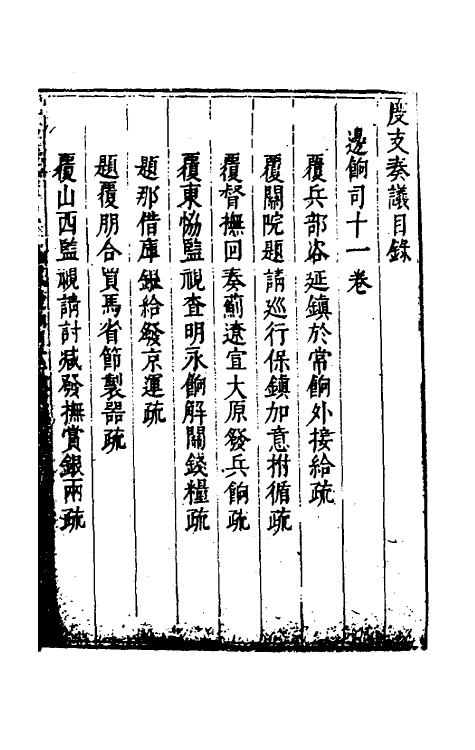 度支奏議目錄
邊餉司十一卷
覆兵部咨延鎮於常餉外接給疏
覆關院題請巡行保鎮加意拊循疏
覆督撫回奏薊遼宣大原發兵餉疏
覆東恊監視查明永餉解關錢糧疏
題那借庫銀給發京運疏
題覆朋合買馬省節製器疏
覆山西監視請討減發撫賞銀兩疏